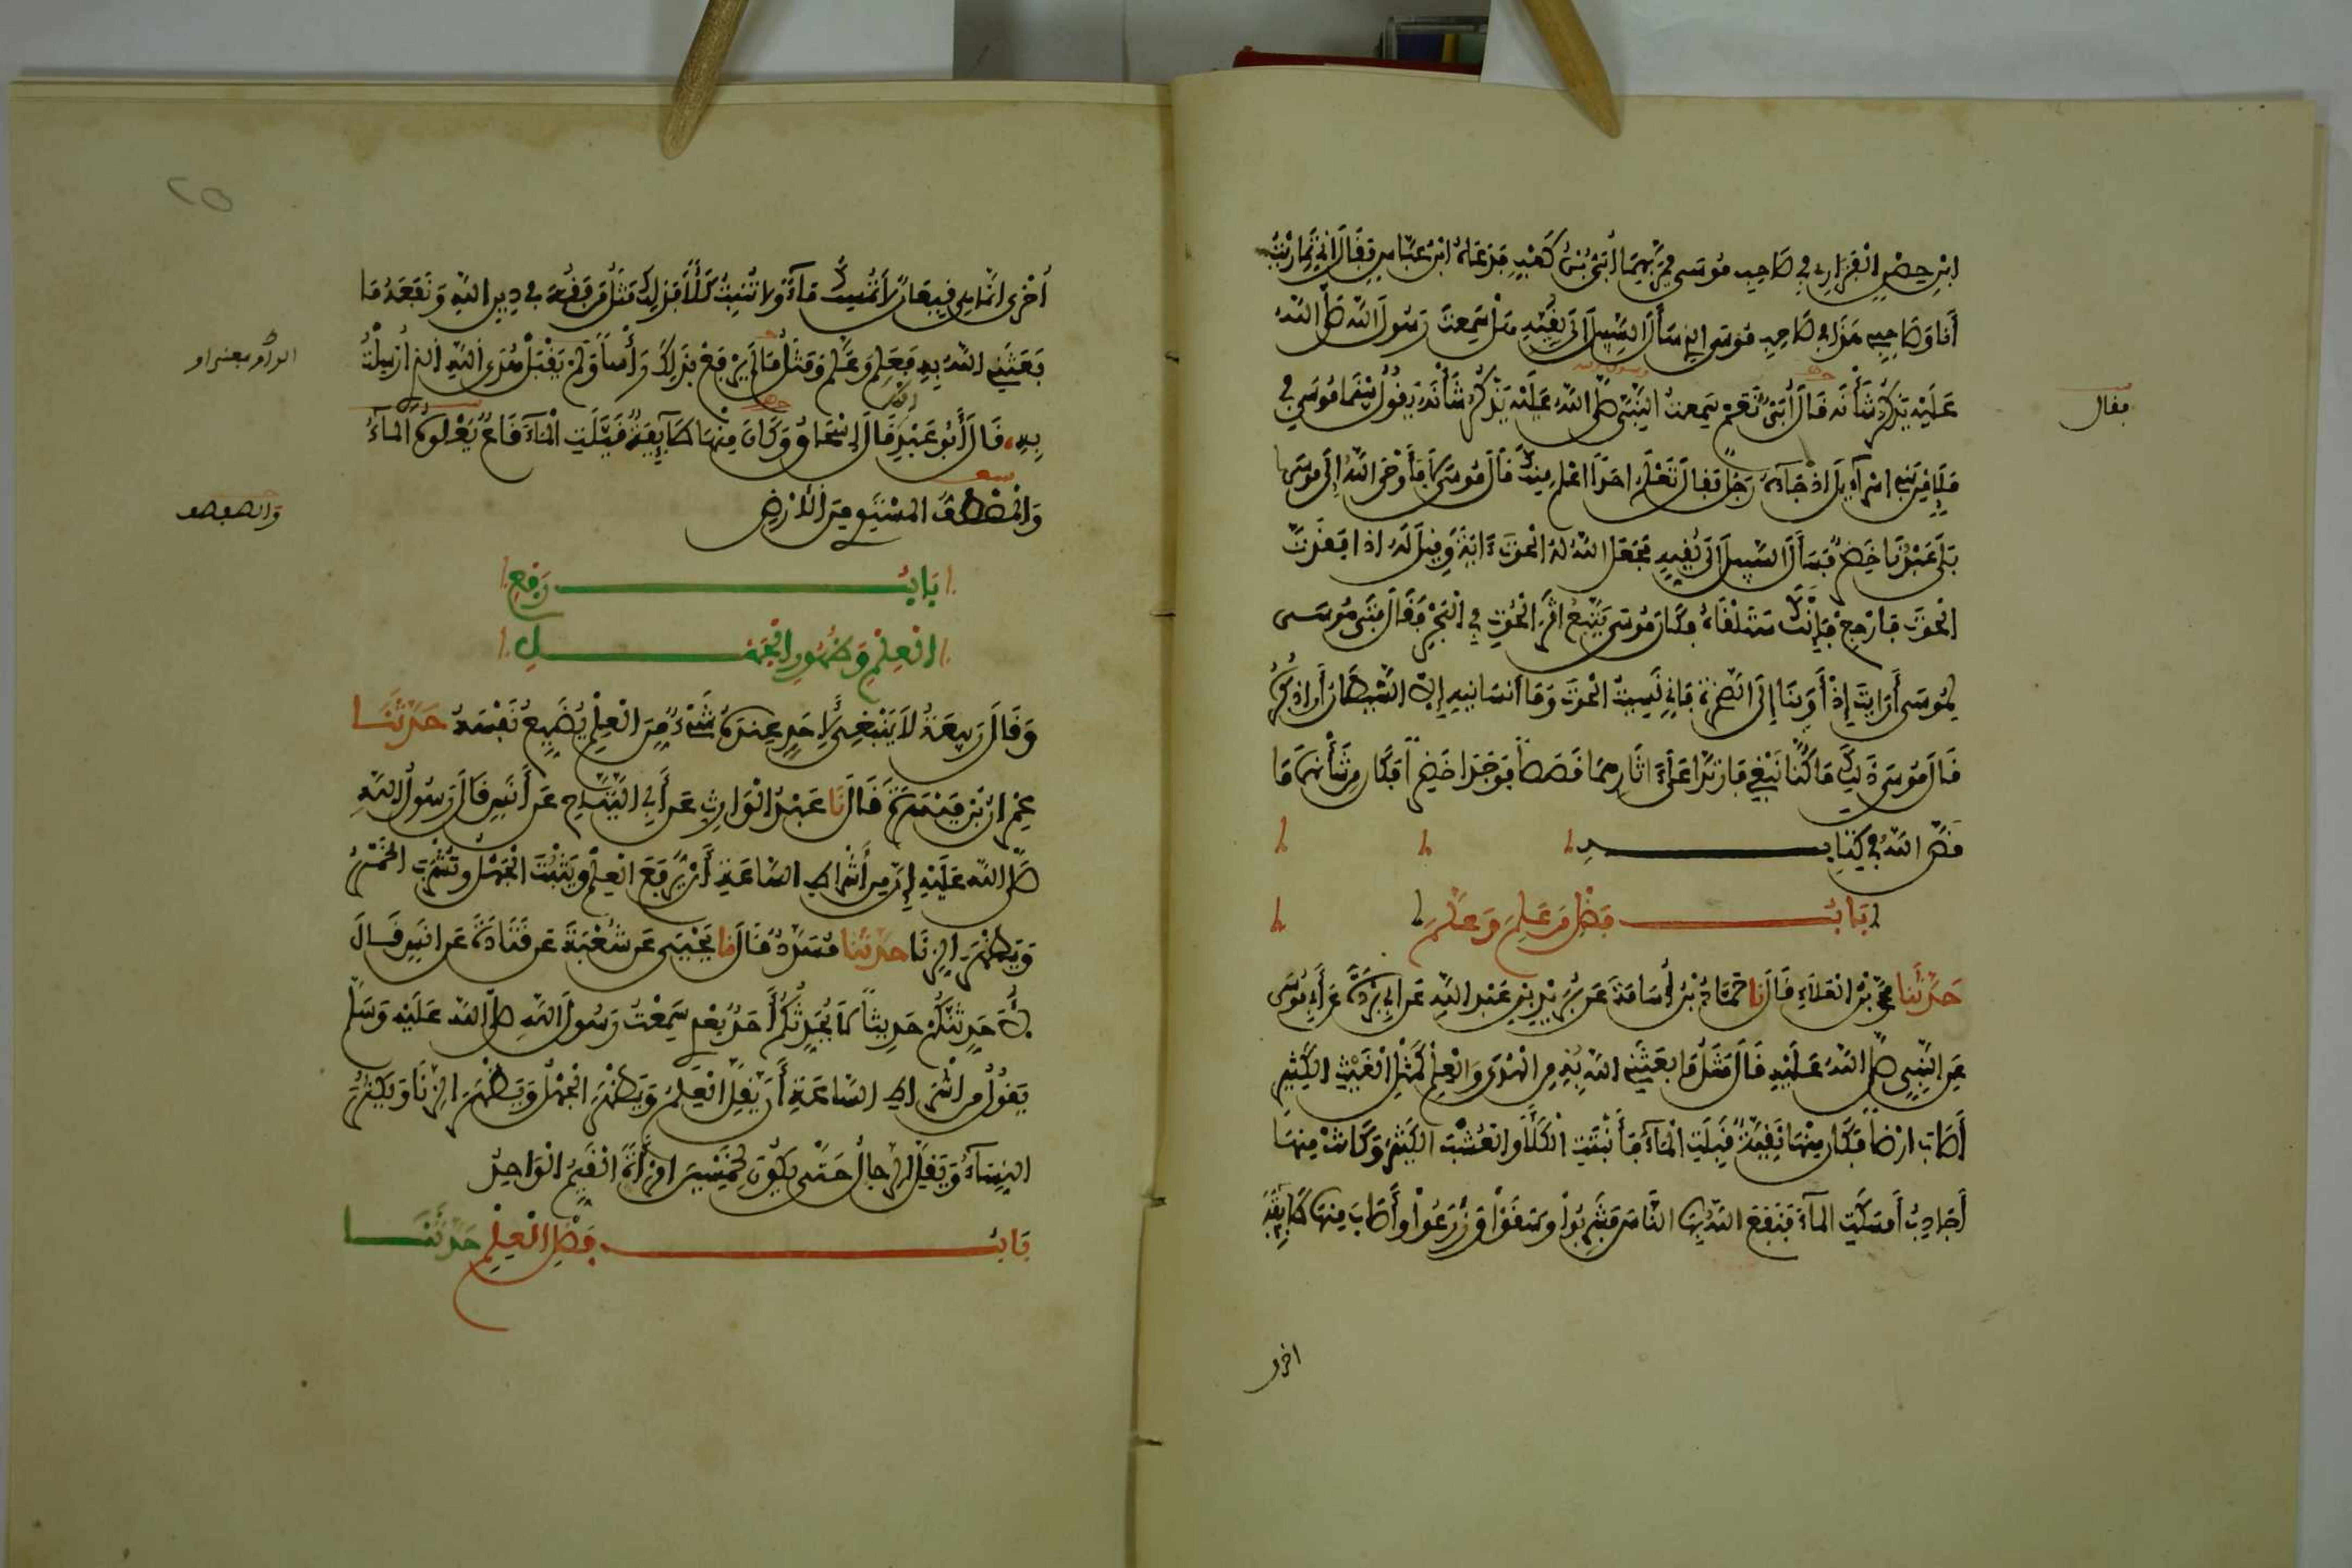 ابْنِ حِصْنٍ الفَزَارِي فِي صَاحِبِ مُوسَى فَمَرَّ بِهِمَا أُبَيُّ بْنُ كَعْبٍ فَدَعَاهُ ابْنُ عَبَّاسٍ فَقَالَ إِنِّي تَمَارَيْتُ
أَنَا وَصَاحِبِي هَذَا فِي صَاحِبِ مُوسَى الذِي سَأَلَ السَّبِيلَ إِلَى لُقِيِّهِ هَلْ سَمِعْتَ رَسُولَ اللهِ صَلَّى اللهُ
عَلَيْهِ يَذْكُرُ شَأْنَهُ قَالَ أُبَيٌّ نَعَمْ سَمِعْتُ النَّبِيَّ صَلَّى اللهُ عَلَيْهِ يَذْكُرُ شَأْنَهُ يَقُولُ بَيْنَمَا مُوسَى فِي
فقال
مَلَإٍ مِنْ بَنِي اسْرَآءِيلَ اذْ جَآءَهُ رَجُلٌ فَقَالَ تَعْلَمُ احَدًا اعْلَمَ مِنْكَ قَالَ مُوسَى لَا فَأَوْحَى اللهُ إِلَى مُوسَى
بَلَى عَبْدُنَا خَضِرٌ فَسَأَلَ السَّبِيلَ إِلَى لُقِيِّهِ فَجَعَلَ اللهُ لَهُ الحُوتَ ءَايَةً وَقِيلَ لَهُ اذَا فَقَدْتَ
الحُوتَ فَارْجِعْ فَإِنَّكَ سَتَلْقَاهُ فَكَانَ مُوسَى يَتَّبِعُ اثَرَ الحُوتِ فِي البَحْرِ فَقَالَ فَتَى مُوسَى
لِمُوسَى أَرَايْتَ إِذْ أَوَيْنَا إِلَى الصَّخْرَةِ فَإِنِّي نَسِيتُ الحُوتَ وَمَا أَنسَانِيهِ إِلَّا الشَّيْطَانُ أَنَ اذْكُرَهُ
قَالَ مُوسَى ذَلِكَ مَا كُنَّا نَبْغِي فَارْتَدَّا عَلَى ءَاثَارِهِمَا قَصَصًا فَوَجَدَا خَضِرًا فَكَانَ مِن شَأْنِهِمَا مَا
قَصَّ اللهُ فِي كِتَابِهِ
بَابُ فَضْلِ مَن عَلِمَ وَعَلَّمَ
حَدَّثَنَا مُحَمَّدُ بْنُ العَلَاءِ قَالَ نَا حَمَّادُ بْنُ أُسَامَةَ عَن بُرَيْدِ بنِ عَبْدِ اللهِ عَن أَبِي بُرْدَةَ عَن أَبِي مُوسَى
عَنِ النَّبِيِّ صَلَّى اللهُ عَلَيْهِ قَالَ مَثَلُ مَا بَعَثَنِي اللهُ بِهِ مِنَ الهُدَى وَالعِلْمِ كَمَثَلِ الغَيْثِ الكَثِيرِ
أَصَابَ ارْضًا فَكَانَ مِنْهَا نَقِيَّةٌ قَبِلَتِ المَاءَ فَأَنْبَتَتِ الكَلَأَ وَالعُشْبَ الكَثِيرَ وَكَانَتْ مِنْهَا
أَجَادِبُ أَمْسَكَتِ المَآءَ فَنَفَعَ اللهُ بِهَا النَّاسَ فَشَرِبُوا وَسَقَوْا وَزَرَعُوا وَأَصَابَ مِنْهَا طَايِفَةً
اخرى
أُخْرَى انَّمَا هِيَ قِيعَانٌ لَا تُمْسِكُ مَآءً وَلَا تُنْبِتُ كَلَأً فَذَلِكَ مَثَلُ مَن فَقُهَ فِي دِينِ اللهِ وَنَفَعَهُ مَا
بَعَثَنِيَ اللهُ بِهِ فَعَلِمَ وَعَلَّمَ وَمَثَلُ مَن لَمْ يَرْفَعْ بِذَلِكَ رَأْسًا وَلَمْ يَقْبَلْ هُدَى اللهِ الذِي أُرْسِلْتُ
بِهِ قَالَ أَبُو عَبْدِ اللهِ قَالَ إِسْحَاقُ وَكَانَ مِنْهَا طَآيِفَةٌ قَيَّلَتِ المَآءَ قَاعٌ يَعْلُوهُ المَآءُ
وَالصَّفْصَفُ المُسْتَوِي مِنَ الأَرْضِ
والصفصف
بَابُ رَفْعِ
العِلْمِ وَظُهُورِ الجَهْلِ
وَقَالَ رَبِيعَةُ لَا يَنْبَغِي لِأَحَدٍ عِندَهُ شَيْءٌ مِنَ العِلْمِ يُضَيِّعُ نَفْسَهُ حَدَّثَنَا
عِمْرَانُ بْنُ مَيْسَرَةَ قَالَ نَا عَبْدُ الوَارِثِ عَن أَبِي التَّيَّاحِ عَن أَنَسٍ قَالَ رَسُولُ اللهِ
صَلَّى اللهُ عَلَيْهِ إِنَّ مِن أَشْرَاطِ السَّاعَةِ أَن يُرْفَعَ العِلْمُ وَيَثْبُتَ الجَهْلُ وَتُشْرَبَ الخَمْرُ
وَيَظْهَرَ الزِّنَا حَدَّثَنَا مُسَدَّدٌ قَالَ نَا يَحْيَى عَن شُعْبَةَ عَن قَتَادَةَ عَن انَسٍ قَالَ
لَأُحَدِّثَنَّكُمْ حَدِيثًا لَا يُحَدِّثُكُمُ أَحَدٌ بَعْدِي سَمِعْتُ رَسُولَ اللهِ صَلَّى اللهُ عَلَيْهِ وَسَلَّمَ
يَقُولُ مِن اشْرَاطِ السَّاعَةِ أَن يَقِلَّ العِلْمُ وَيَظْهَرَ الجَهْلُ وَيَظْهَرَ الزِّنَا وَيَكْثُرَ
النِّسَآءُ وَيَقِلَّ الرِّجَالُ حَتَّى يَكُونَ لِخَمْسِينَ امْرَأَةً القَيِّمُ الوَاحِدُ
بَابُ فَضْلِ العِلْمِ حَدَّثَنَا